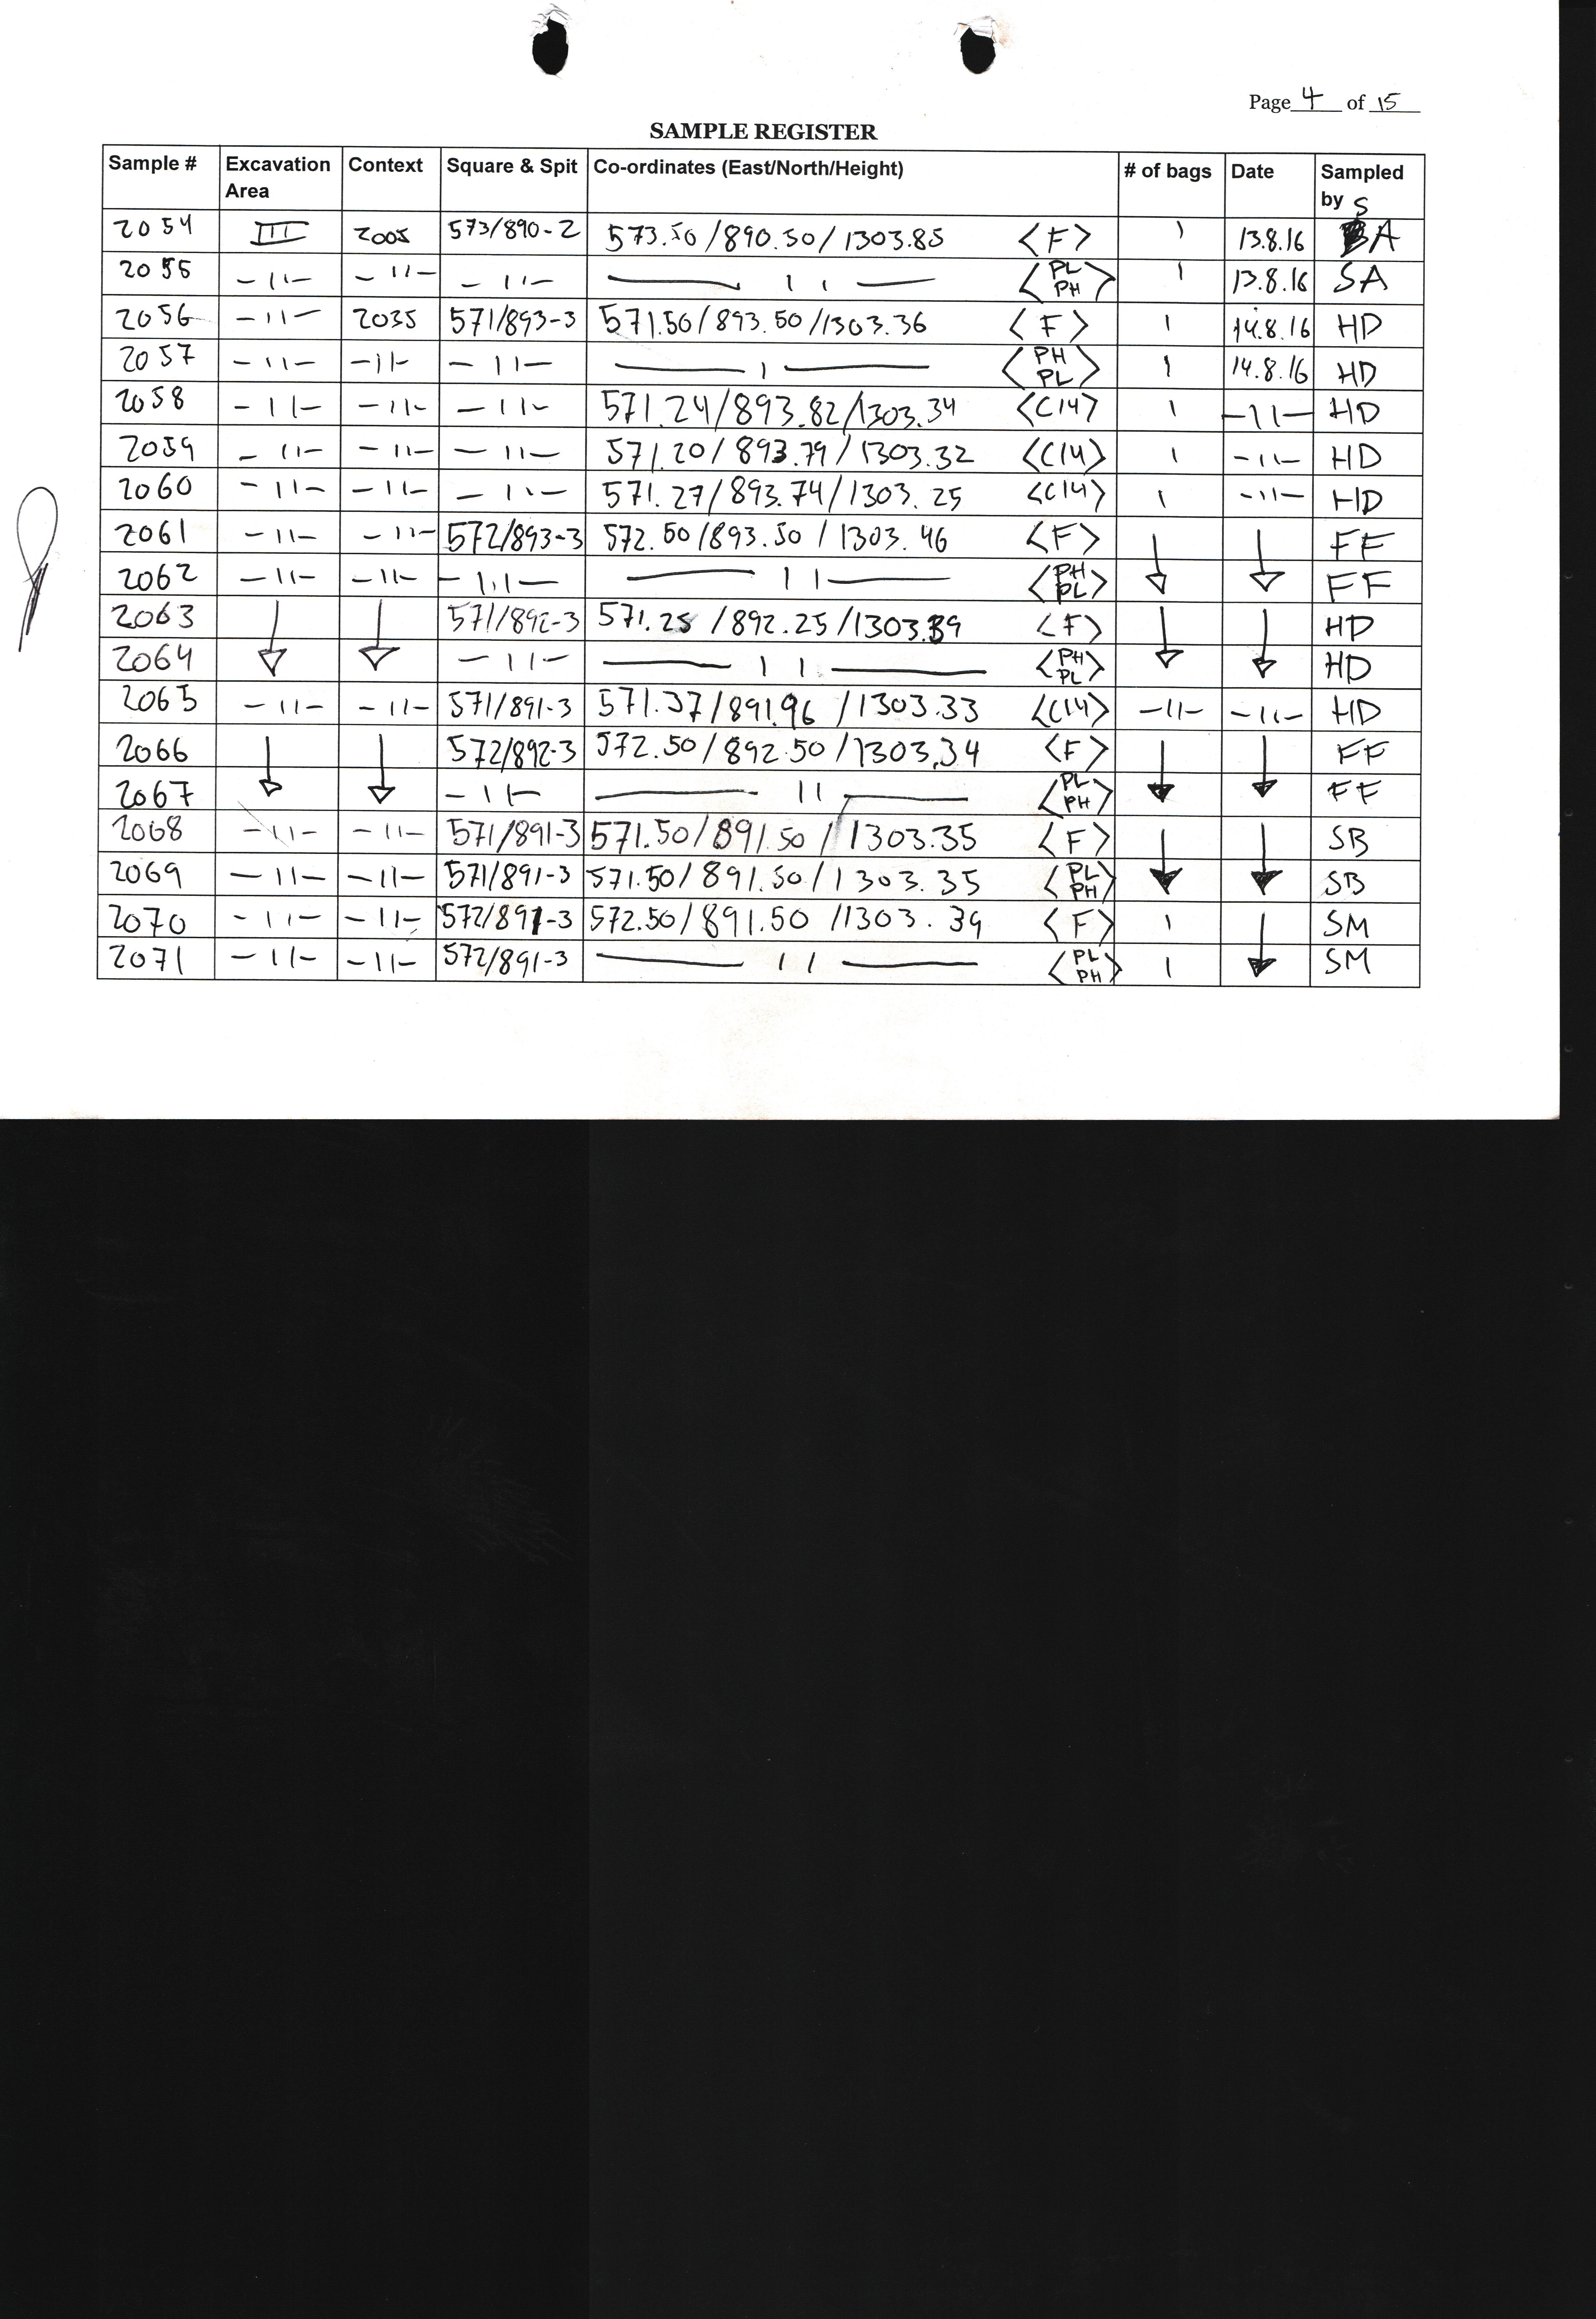 Page 4 of 15
SAMPLE REGISTER
Sample # Excavation Area Context Square & Spit Co-ordinates (East/North/Height) # of bags Date Sampled by
2054 III 2005 573/890-2 573.50/890.50/1303.85 <F> 1 13.8.16 SA
2055 -11- -11- -11- -11- <PL PH> 1 13.8.16 SA
2056 -11- 2035 571/893-3 571.50/893.50/1303.36 <F> 1 14.8.16 HD
2057 -11- -11- -11- -1- <PH PL> 1 14.8.16 HD
2058 -11- -11- -11- 571.24/893.82/1303.34 <C14> 1 -11- HD
2059 -11- -11- -11- 571.20/893.79/1303.32 <C14> 1 -11- HD
2060 -11- -11- -11- 571.27/893.74/1303.25 <C14> 1 -11- HD
2061 -11- -11- 572/893-3 572.50/893.50/1303.46 <F> ↓ ↓ FF
2062 -11- -11- -11- -11- <PH PL> FF
2063 ↓ ↓ 571/892-3 571.25/892.25/1303.39 <F> ↓ ↓ HD
2064 -11- -11- <PH PL> HD
2065 -11- -11- 571/891-3 571.37/891.96/1303.33 <C14> -11- -11- HD
2066 ↓ ↓ 572/892-3 572.50/892.50/1303.34 <F> ↓ ↓ FF
2067 -11- -11- <PL PH> FF
2068 -11- -11- 571/891-3 571.50/891.50/1303.35 <F> ↓ ↓ SB
2069 -11- -11- 571/891-3 571.50/891.50/1303.35 <PL PH> SB
2070 -11- -11- 572/891-3 572.50/891.50/1303.39 <F> 1 ↓ SM
2071 -11- -11- 572/891-3 -11- <PL PH> 1 SM